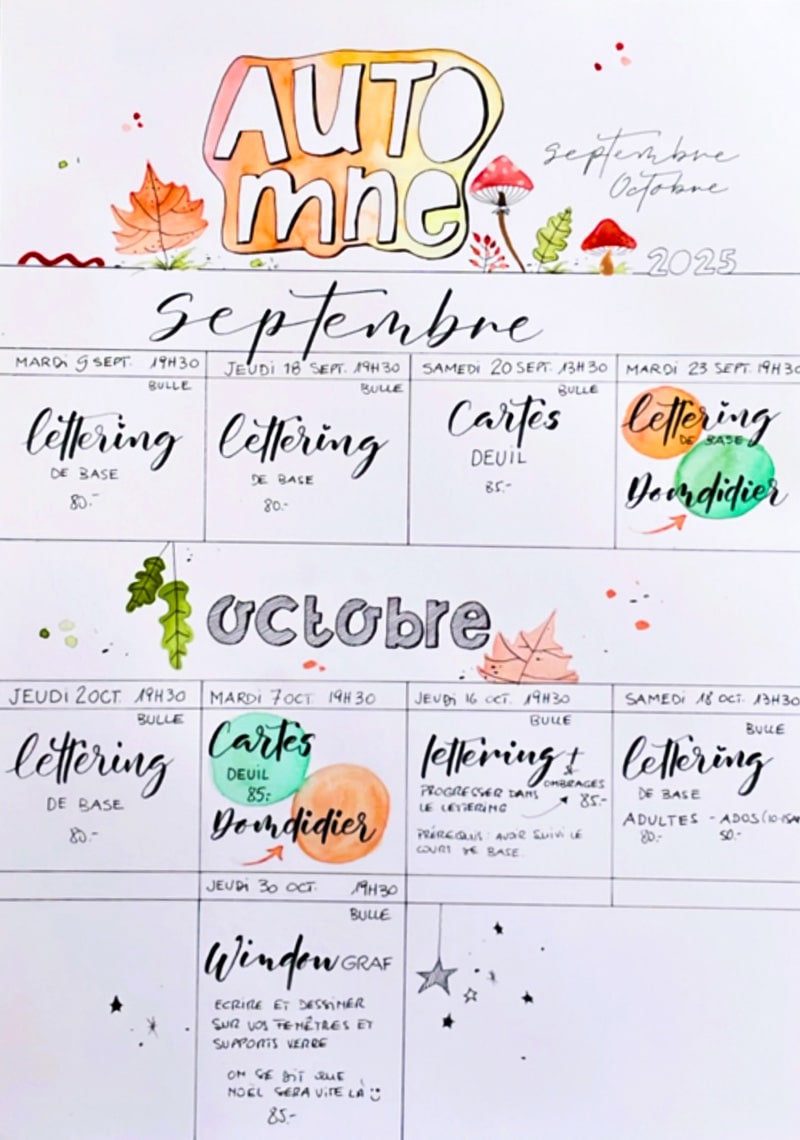 AUTO
mne
septembre
Octobre
2025
Septembre
MARDI 9 SEPT. 19H30
BULLE
lettering
DE BASE
80.-
JEUDI 18 SEPT. 19H30
BULLE
lettering
DE BASE
80.-
SAMEDI 20 SEPT. 13H30
BULLE
Cartes
DEUIL
85.-
MARDI 23 SEPT. 19H30
lettering
DE BASE
Domdidier
octobre
JEUDI 2 OCT. 19H30
BULLE
lettering
DE BASE
80.-
MARDI 7 OCT. 19H30
Cartes
DEUIL
85.-
Domdidier
JEUDI 16 OCT. 19H30
BULLE
lettering +
& OMBRAGES
PROGRESSER DANS
LE LETTERING
85.-
PRÉREQUIS : AVOIR SUIVI LE
COURS DE BASE.
SAMEDI 18 OCT. 13H30
BULLE
lettering
DE BASE
ADULTES - ADOS
80.- 50.-
JEUDI 30 OCT. 19H30
BULLE
Window GRAF
ECRIRE ET DESSINER
SUR VOS FENÊTRES ET
SUPPORTS VERRE
ON SE DIT QUE
NOËL SERA VITE LÀ
85.-